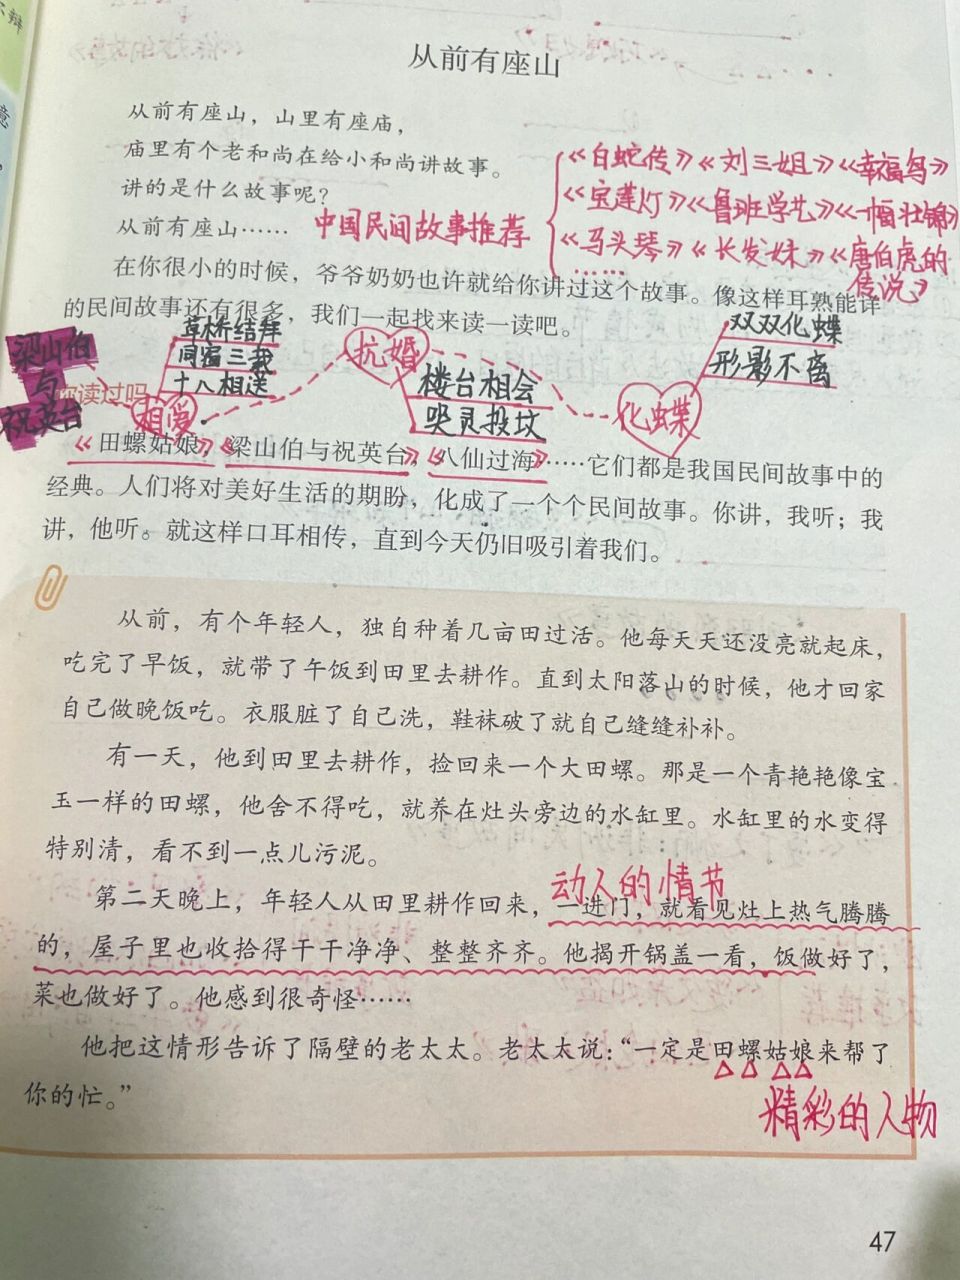 不辩
意
从前有座山
从前有座山，山里有座庙，
庙里有个老和尚在给小和尚讲故事。
讲的是什么故事呢？
从前有座山……
中国民间故事推荐
《白蛇传》《刘三姐》《幸福鸟》
《宝莲灯》《鲁班学艺》《一幅壮锦》
《马头琴》《长发妹》《唐伯虎的
传说》
……
在你很小的时候，爷爷奶奶也许就给你讲过这个故事。像这样耳熟能详
的民间故事还有很多，我们一起找来读一读吧。
梁山伯
与
祝英台
你读过吗
相爱
草桥结拜
同窗三载
十八相送
抗婚
楼台相会
哭灵投坟
化蝶
双双化蝶
形影不离
《田螺姑娘》《梁山伯与祝英台》《八仙过海》……它们都是我国民间故事中的
经典。人们将对美好生活的期盼，化成了一个个民间故事。你讲，我听；我
讲，他听。就这样口耳相传，直到今天仍旧吸引着我们。
从前，有个年轻人，独自种着几亩田过活。他每天天还没亮就起床，
吃完了早饭，就带了午饭到田里去耕作。直到太阳落山的时候，他才回家
自己做晚饭吃。衣服脏了自己洗，鞋袜破了就自己缝缝补补。
有一天，他到田里去耕作，捡回来一个大田螺。那是一个青艳艳像宝
玉一样的田螺，他舍不得吃，就养在灶头旁边的水缸里。水缸里的水变得
特别清，看不到一点儿污泥。
动人的情节
第二天晚上，年轻人从田里耕作回来，一进门，就看见灶上热气腾腾
的，屋子里也收拾得干干净净、整整齐齐。他揭开锅盖一看，饭做好了，
菜也做好了。他感到很奇怪……
他把这情形告诉了隔壁的老太太。老太太说：“一定是田螺姑娘来帮了
你的忙。”
精彩的人物
47